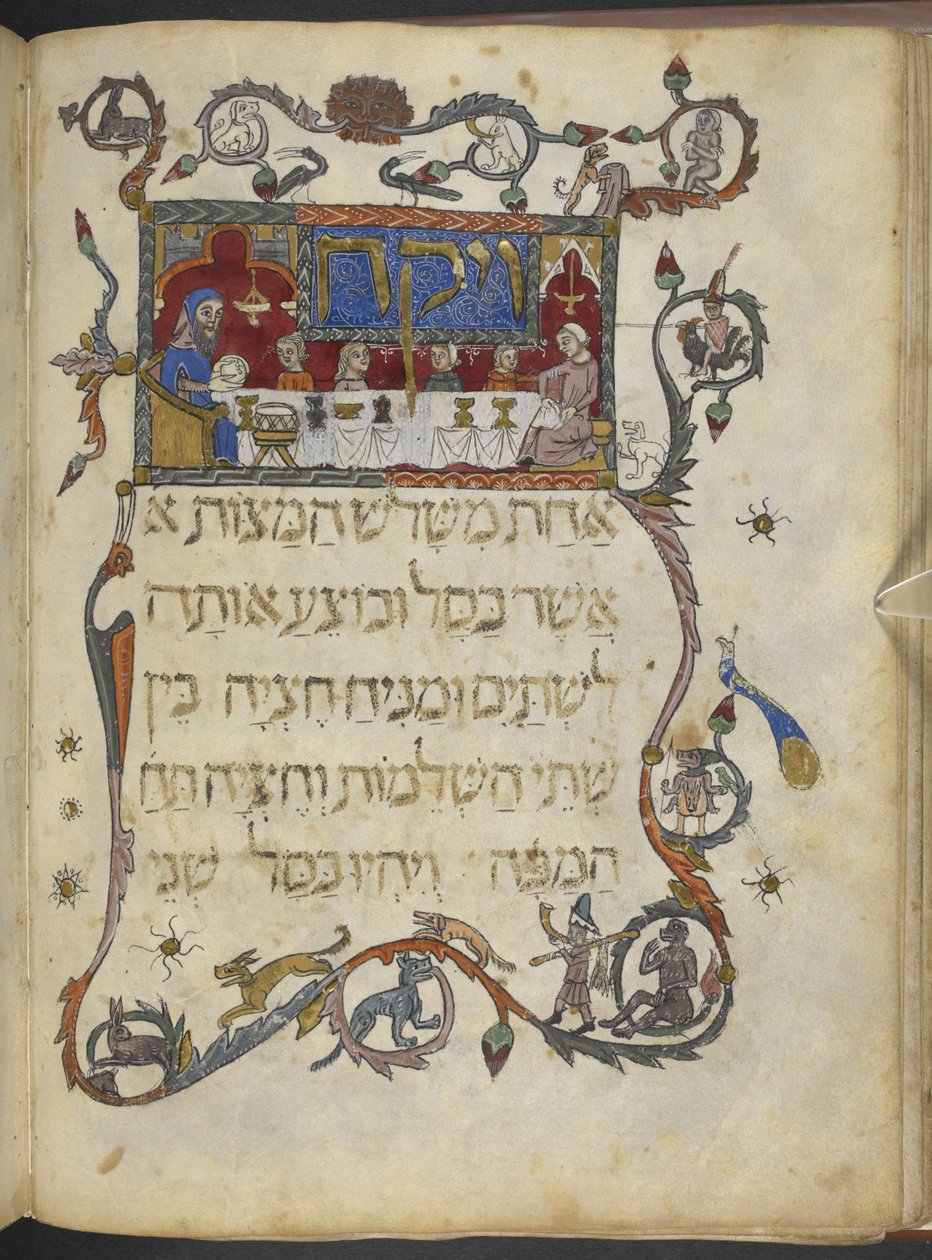 ויקח
אַחַת מִשָּׁלשׁ הַמַּצּוֹת א
אֲשֶׁר בַּסַּל וּבוֹצֵעַ אוֹתָהּ
לִשְׁתַּיִם וּמַנִּיחַ חֶצְיָהּ בֵּין
שְׁתֵּי הַשְּׁלֵמוֹת וְחֶצְיָהּ תַּחַ
הַמַּפָּה וְיִהְיוּ בַּסַּל שְׁנֵי